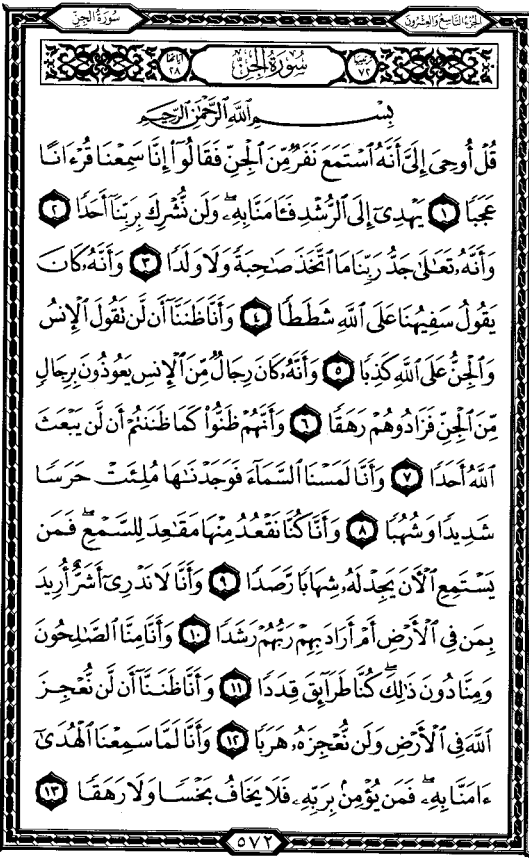 الجزء التاسع والعشرون
سورة الجن
ترتيبها ٧٢ سورة الجن آياتها ٢٨
بِسْمِ اللَّهِ الرَّحْمَٰنِ الرَّحِيمِ
قُلْ أُوحِيَ إِلَيَّ أَنَّهُ ٱسْتَمَعَ نَفَرٌ مِّنَ ٱلْجِنِّ فَقَالُوٓا۟ إِنَّا سَمِعْنَا قُرْءَانًا
عَجَبًا ١ يَهْدِىٓ إِلَى ٱلرُّشْدِ فَـَٔامَنَّا بِهِۦ ۖ وَلَن نُّشْرِكَ بِرَبِّنَآ أَحَدًا ٢
وَأَنَّهُۥ تَعَٰلَىٰ جَدُّ رَبِّنَا مَا ٱتَّخَذَ صَٰحِبَةً وَلَا وَلَدًا ٣ وَأَنَّهُۥ كَانَ
يَقُولُ سَفِيهُنَا عَلَى ٱللَّهِ شَطَطًا ٤ وَأَنَّا ظَنَنَّآ أَن لَّن تَقُولَ ٱلْإِنسُ
وَٱلْجِنُّ عَلَى ٱللَّهِ كَذِبًا ٥ وَأَنَّهُۥ كَانَ رِجَالٌ مِّنَ ٱلْإِنسِ يَعُوذُونَ بِرِجَالٍ
مِّنَ ٱلْجِنِّ فَزَادُوهُمْ رَهَقًا ٦ وَأَنَّهُمْ ظَنُّوا۟ كَمَا ظَنَنتُمْ أَن لَّن يَبْعَثَ
ٱللَّهُ أَحَدًا ٧ وَأَنَّا لَمَسْنَا ٱلسَّمَآءَ فَوَجَدْنَٰهَا مُلِئَتْ حَرَسًا
شَدِيدًا وَشُهُبًا ٨ وَأَنَّا كُنَّا نَقْعُدُ مِنْهَا مَقَٰعِدَ لِلسَّمْعِ ۖ فَمَن
يَسْتَمِعِ ٱلْـَٔانَ يَجِدْ لَهُۥ شِهَابًا رَّصَدًا ٩ وَأَنَّا لَا نَدْرِىٓ أَشَرٌّ أُرِيدَ
بِمَن فِى ٱلْأَرْضِ أَمْ أَرَادَ بِهِمْ رَبُّهُمْ رَشَدًا ١٠ وَأَنَّا مِنَّا ٱلصَّٰلِحُونَ
وَمِنَّا دُونَ ذَٰلِكَ ۖ كُنَّا طَرَآئِقَ قِدَدًا ١١ وَأَنَّا ظَنَنَّآ أَن لَّن نُّعْجِزَ
ٱللَّهَ فِى ٱلْأَرْضِ وَلَن نُّعْجِزَهُۥ هَرَبًا ١٢ وَأَنَّا لَمَّا سَمِعْنَا ٱلْهُدَىٰٓ
ءَامَنَّا بِهِۦ ۖ فَمَن يُؤْمِنۢ بِرَبِّهِۦ فَلَا يَخَافُ بَخْسًا وَلَا رَهَقًا ١٣
٥٧٢